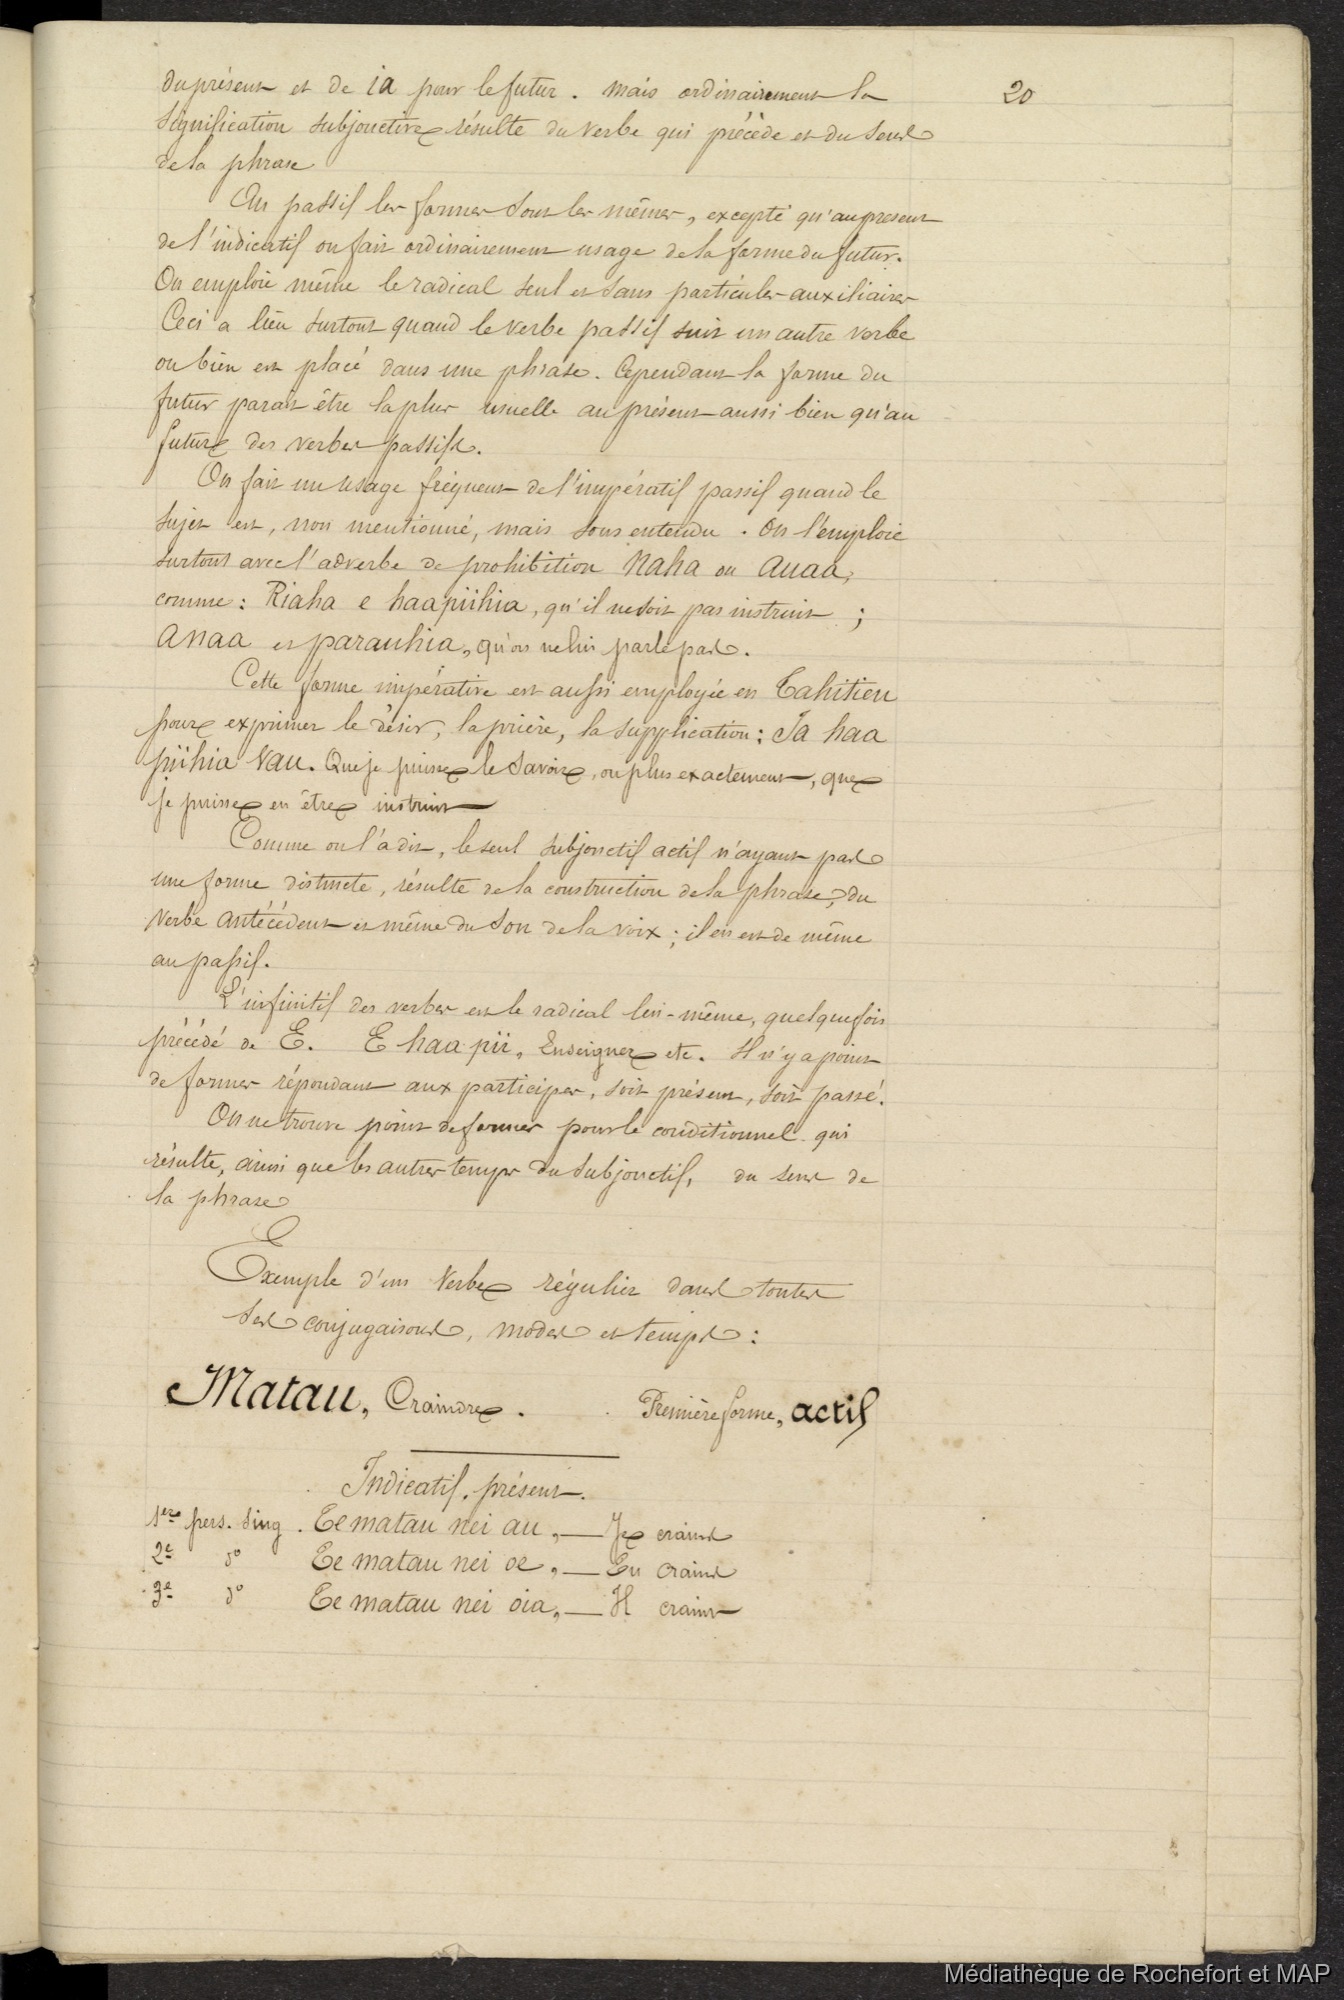 du présent et de ia pour le futur. mais ordinairement la
20
signification subjonctive résulte du verbe qui précède et du sens
de la phrase
Au passif les formes sont les mêmes, excepté qu'au present
de l'indicatif on fait ordinairement usage de la forme du futur.
On emploie même le radical seul et sans particules auxiliaires
Ceci a lieu surtout quand le verbe passif suit un autre verbe
ou bien est placé dans une phrase. Cependant la forme du
futur parait être la plus usuelle au présent aussi bien qu'au
futur des verbes passifs.
On fait un usage fréquent de l'impératif passif quand le
sujet est, non mentionné, mais sous entendu. On l'emploie
surtout avec l'adverbe de prohibition Naha ou auaa,
comme: Riaha e haapiihia, qu'il ne soit pas instruit;
anaa et parauhia, qu'on ne lui parle pas.
Cette forme impérative est aussi employée en Tahitien
pour exprimer le désir, la prière, la supplication: Ia haa
piihia vau. Que je puisse le savoir, ou plus exactement, que
je puisse en être instruit
Comme on l'a dit, le seul subjonctif actif n'ayant pas
une forme distincte, résulte de la construction de la phrase, du
verbe antécédent et même du son de la voix; il en est de même
au passif.
L'infinitif des verbes est le radical lui-même, quelquefois
précédé de E. E haapii, Enseigner etc. Il n'y a point
de formes répondant aux participes, soit présent, soit passé.
On ne trouve point de formes pour le conditionnel qui
résulte, ainsi que les autres temps du subjonctif, du sens de
la phrase
Exemple d'un Verbe régulier dans toutes
ses conjugaisons, modes et temps:
Matau, Craindre. Première forme, actif
Indicatif. présent.
1ere pers. sing. Te matau nei au, — Je crains
2e do Te matau nei oe, — Tu crains
3e do Te matau nei oia, — Il craint
Médiathèque de Rochefort et MAP